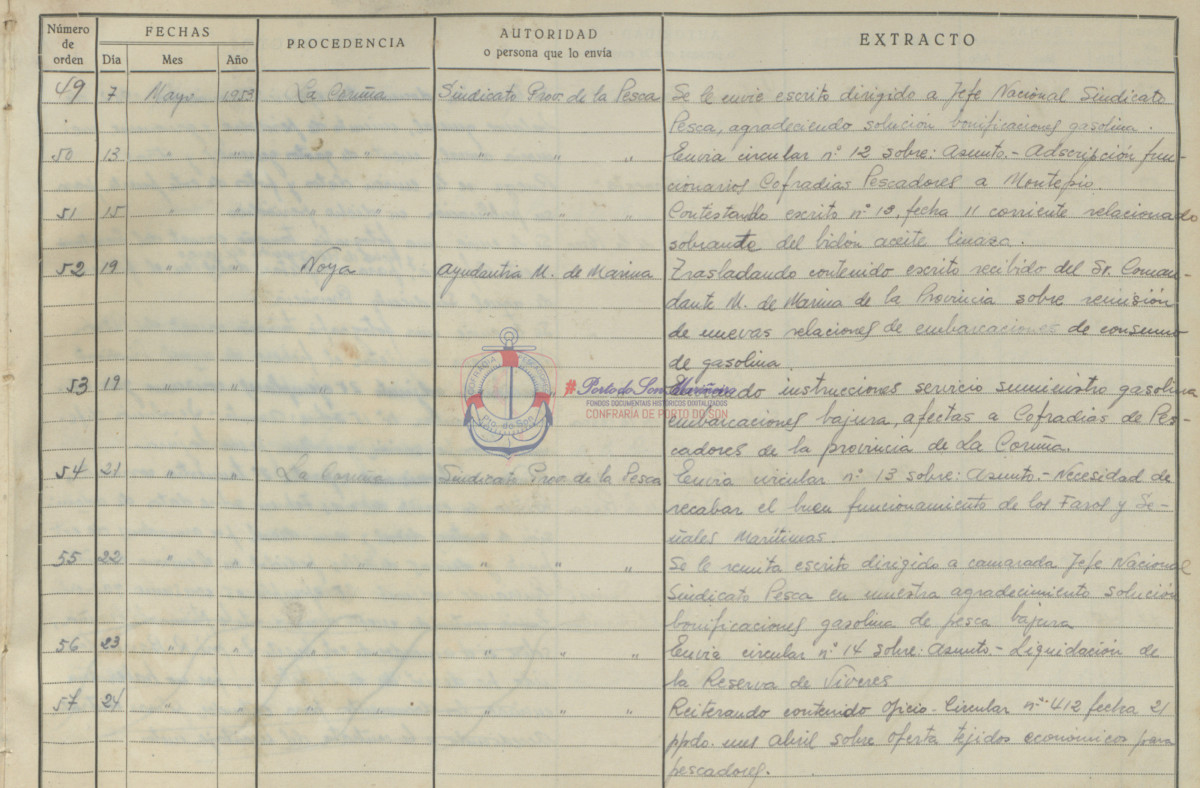 Número de orden FECHAS PROCEDENCIA AUTORIDAD o persona que lo envía EXTRACTO
Día Mes Año
49 7 Mayo 1953 La Coruña Sindicato Prov. de la Pesca Se le envie escrito dirigido a Jefe Nacional Sindicato
Pesca, agradeciendo solución bonificaciones gasolina.
50 13 " " " " " " Envia circular nº 12 sobre: Asunto.- Adscripción fun-
cionarios Cofradias Pescadores a Montepio.
51 15 " " " " " " Contestando escrito nº 13, fecha 11 corriente relacionado
sobrante del bidón aceite linaza.
52 19 " " Noya Ayudantia M. de Marina Trasladando contenido escrito recibido del Sr. Coman-
dante M. de Marina de la Provincia sobre remisión
de nuevas relaciones de embarcaciones de consumo
de gasolina.
53 19 " " " " instrucciones servicio suministro gasolina
embarcaciones bajura, afectas a Cofradias de Pes-
cadores de la provincia de La Coruña.
54 21 " " La Coruña Sindicato Prov. de la Pesca Envia circular nº 13 sobre: Asunto.- Necesidad de
recabar el buen funcionamiento de los Faros y Se-
ñales Marítimas.
55 22 " " " " " " Se le remita escrito dirigido a camarada Jefe Nacional
Sindicato Pesca en muestra agradecimiento solución
bonificaciones gasolina de pesca bajura
56 23 " " " " " " " Envia circular nº 14 sobre: Asunto.- Liquidación de
la Reserva de Viveres
57 24 " " " " " " " Reiterando contenido oficio-Circular nº 412 fecha 21
ppdo. mes Abril sobre oferta tejidos económicos para
pescadores.
Pto. do Son
# Porto do Son Mariñeiro
FONDOS DOCUMENTAIS HISTÓRICOS DIXITALIZADOS
CONFRARÍA DE PORTO DO SON